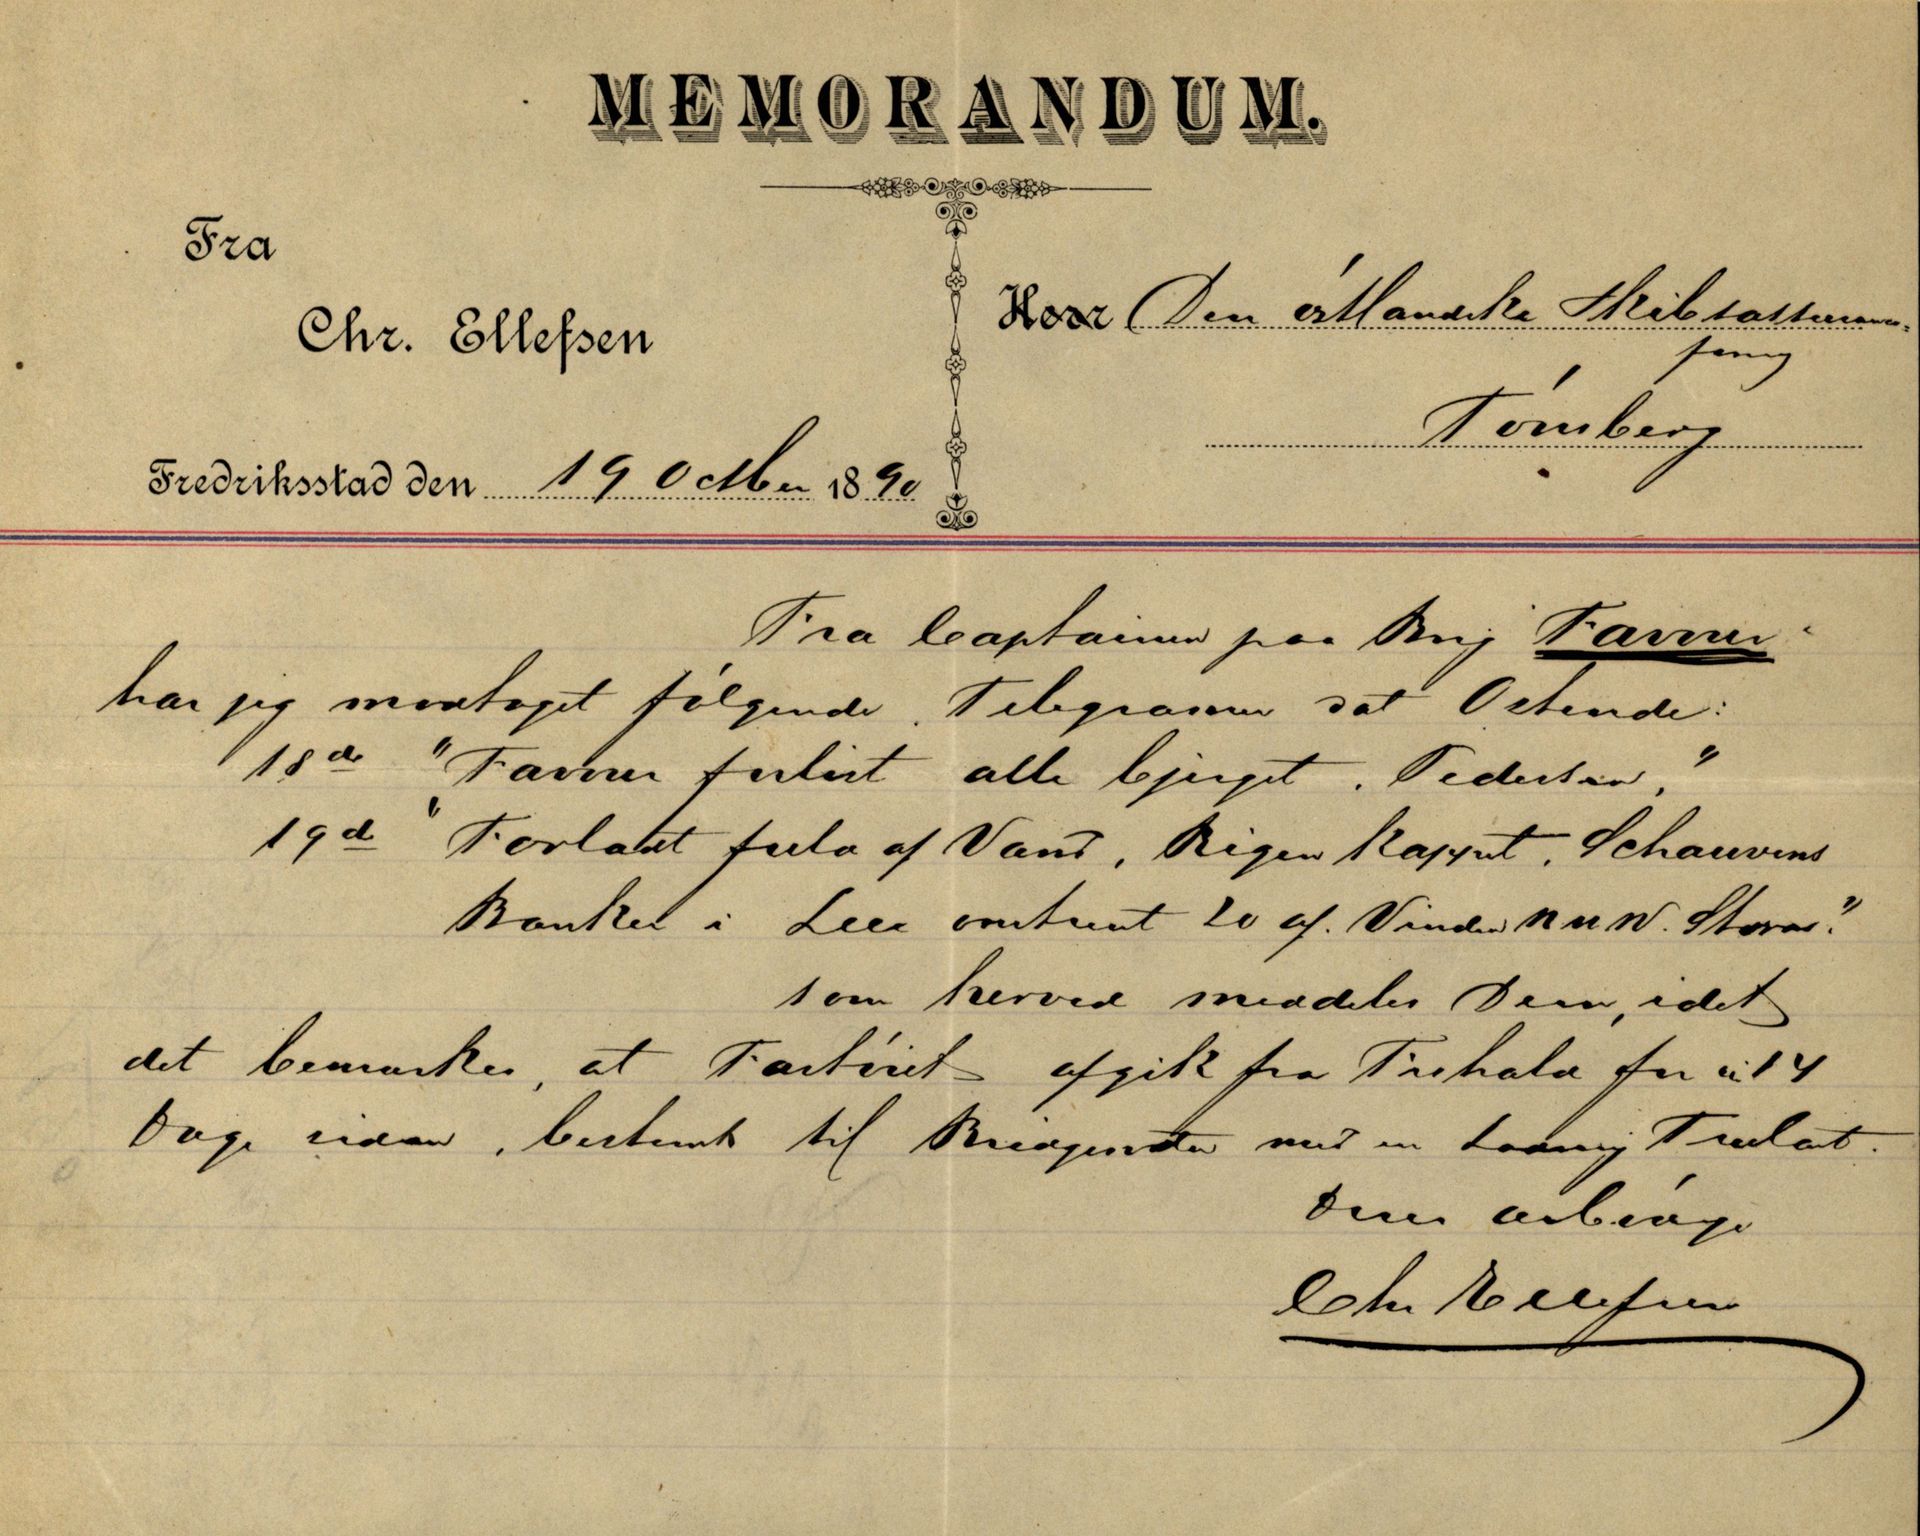 MEMORANDUM.
Fra
Chr. Ellefsen
Herr Den østlandske Skibsassurance-
forng
Tønsberg
Fredriksstad den 19 Octber 1890
Fra Captainen paa Brig Favner
har jeg modtaget følgende Telegramer dat Ostende:
18de "Favner forlist alle bjerget. Pedersen,"
19d "Forladt fuld af Vand, Rigen kapput. Schauvens
Banker i Lee omtrent 20 af. Vinden N N W. Storm."
som herved meddeles Dem, idet
det bemærkes, at Fartøiet afgik fra Frhald for 14
Dage siden, bestemt til med en Ladning Trælast.
Deres ærbødige
Chr Ellefsen